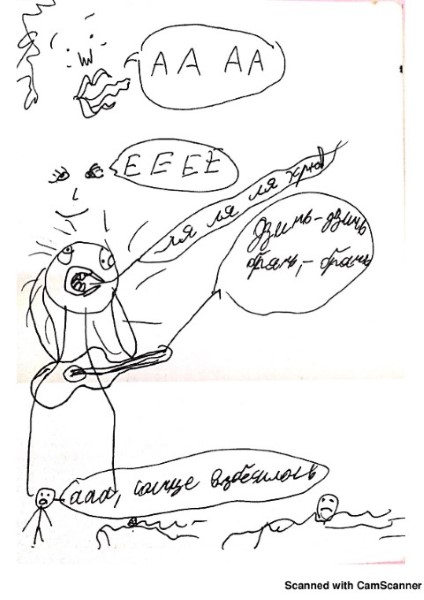 АА АА
ЕЕЕЕ
ля ля ля хрю
Дзинь-дзинь
брянь,-брянь
ааа, солнце взбесилось
Scanned with CamScanner